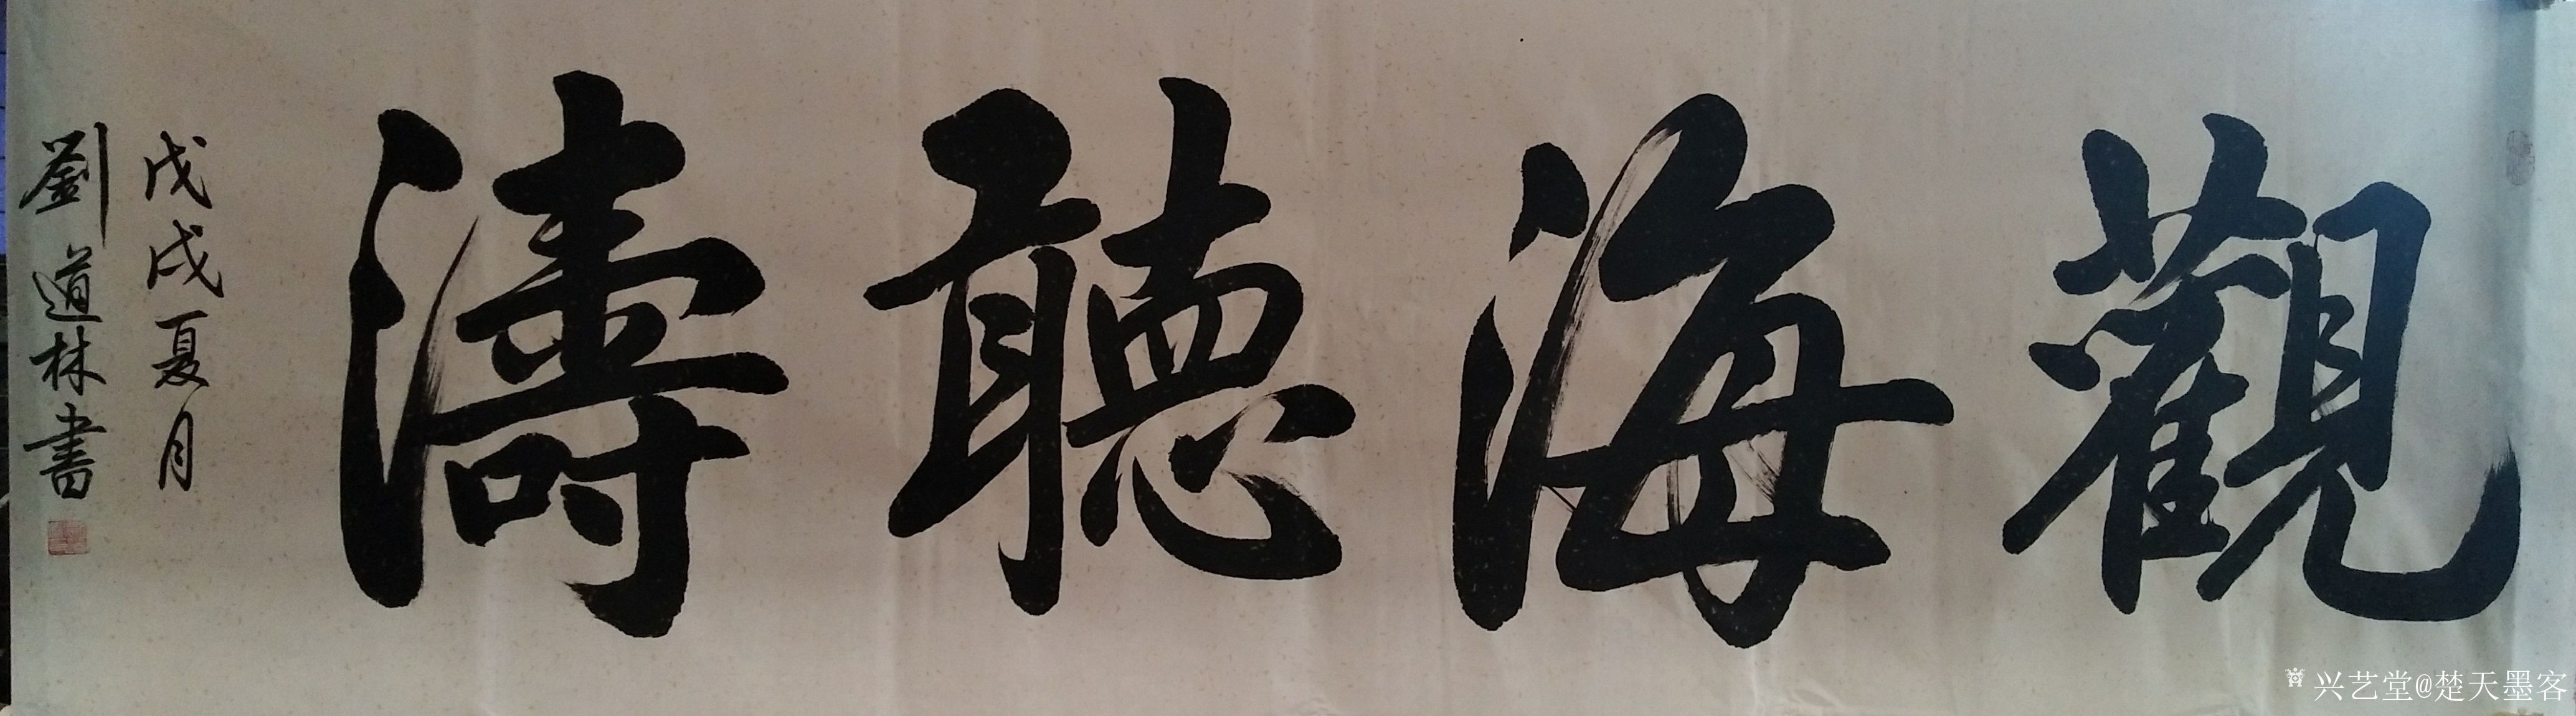 觀海聽濤
戊戌夏月
劉道林書
兴艺堂@楚天墨客